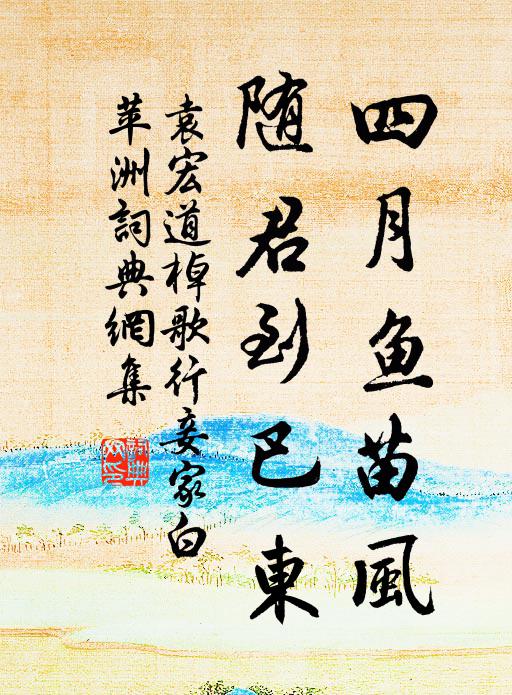 四月鱼苗風
随君到巴東
袁宏道棹歌行妾家白
苹洲詞典網集